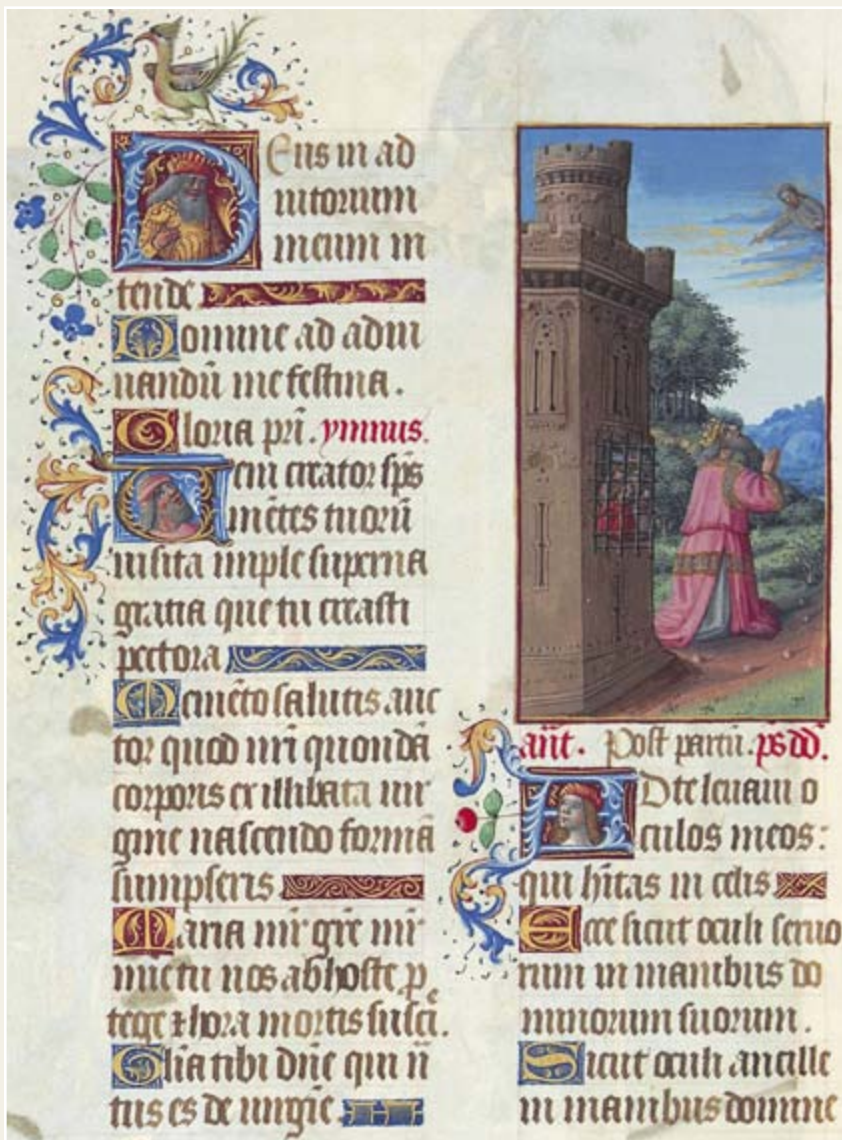 Deus in ad
iutorium
meum in
tende
Domine ad adiu
uandū me festina.
Gloria pr̄i. ymnus.
Ueni creator sp̄s
mētes tuorū
uisita imple superna
gratia que tu creasti
pectora
Memēto salutis auc
tor quod nr̄i quondā
corporis ex illibata uir
gine nascendo formā
sumpseris
Maria mr̄ gr̄e mr̄
mie tu nos ab hoste p
tege & hora mortis susci.
Gl̄ia tibi dn̄e qui n̄
tus es de uirgīe
ant̄. Post partū. ps̄ dd̄.
Ad te leuaui o
culos meos:
qui h̄itas in celis
Ecce sicut oculi seruo
rum in manibus do
minorum suorum.
Sicut oculi ancille
in manibus domine